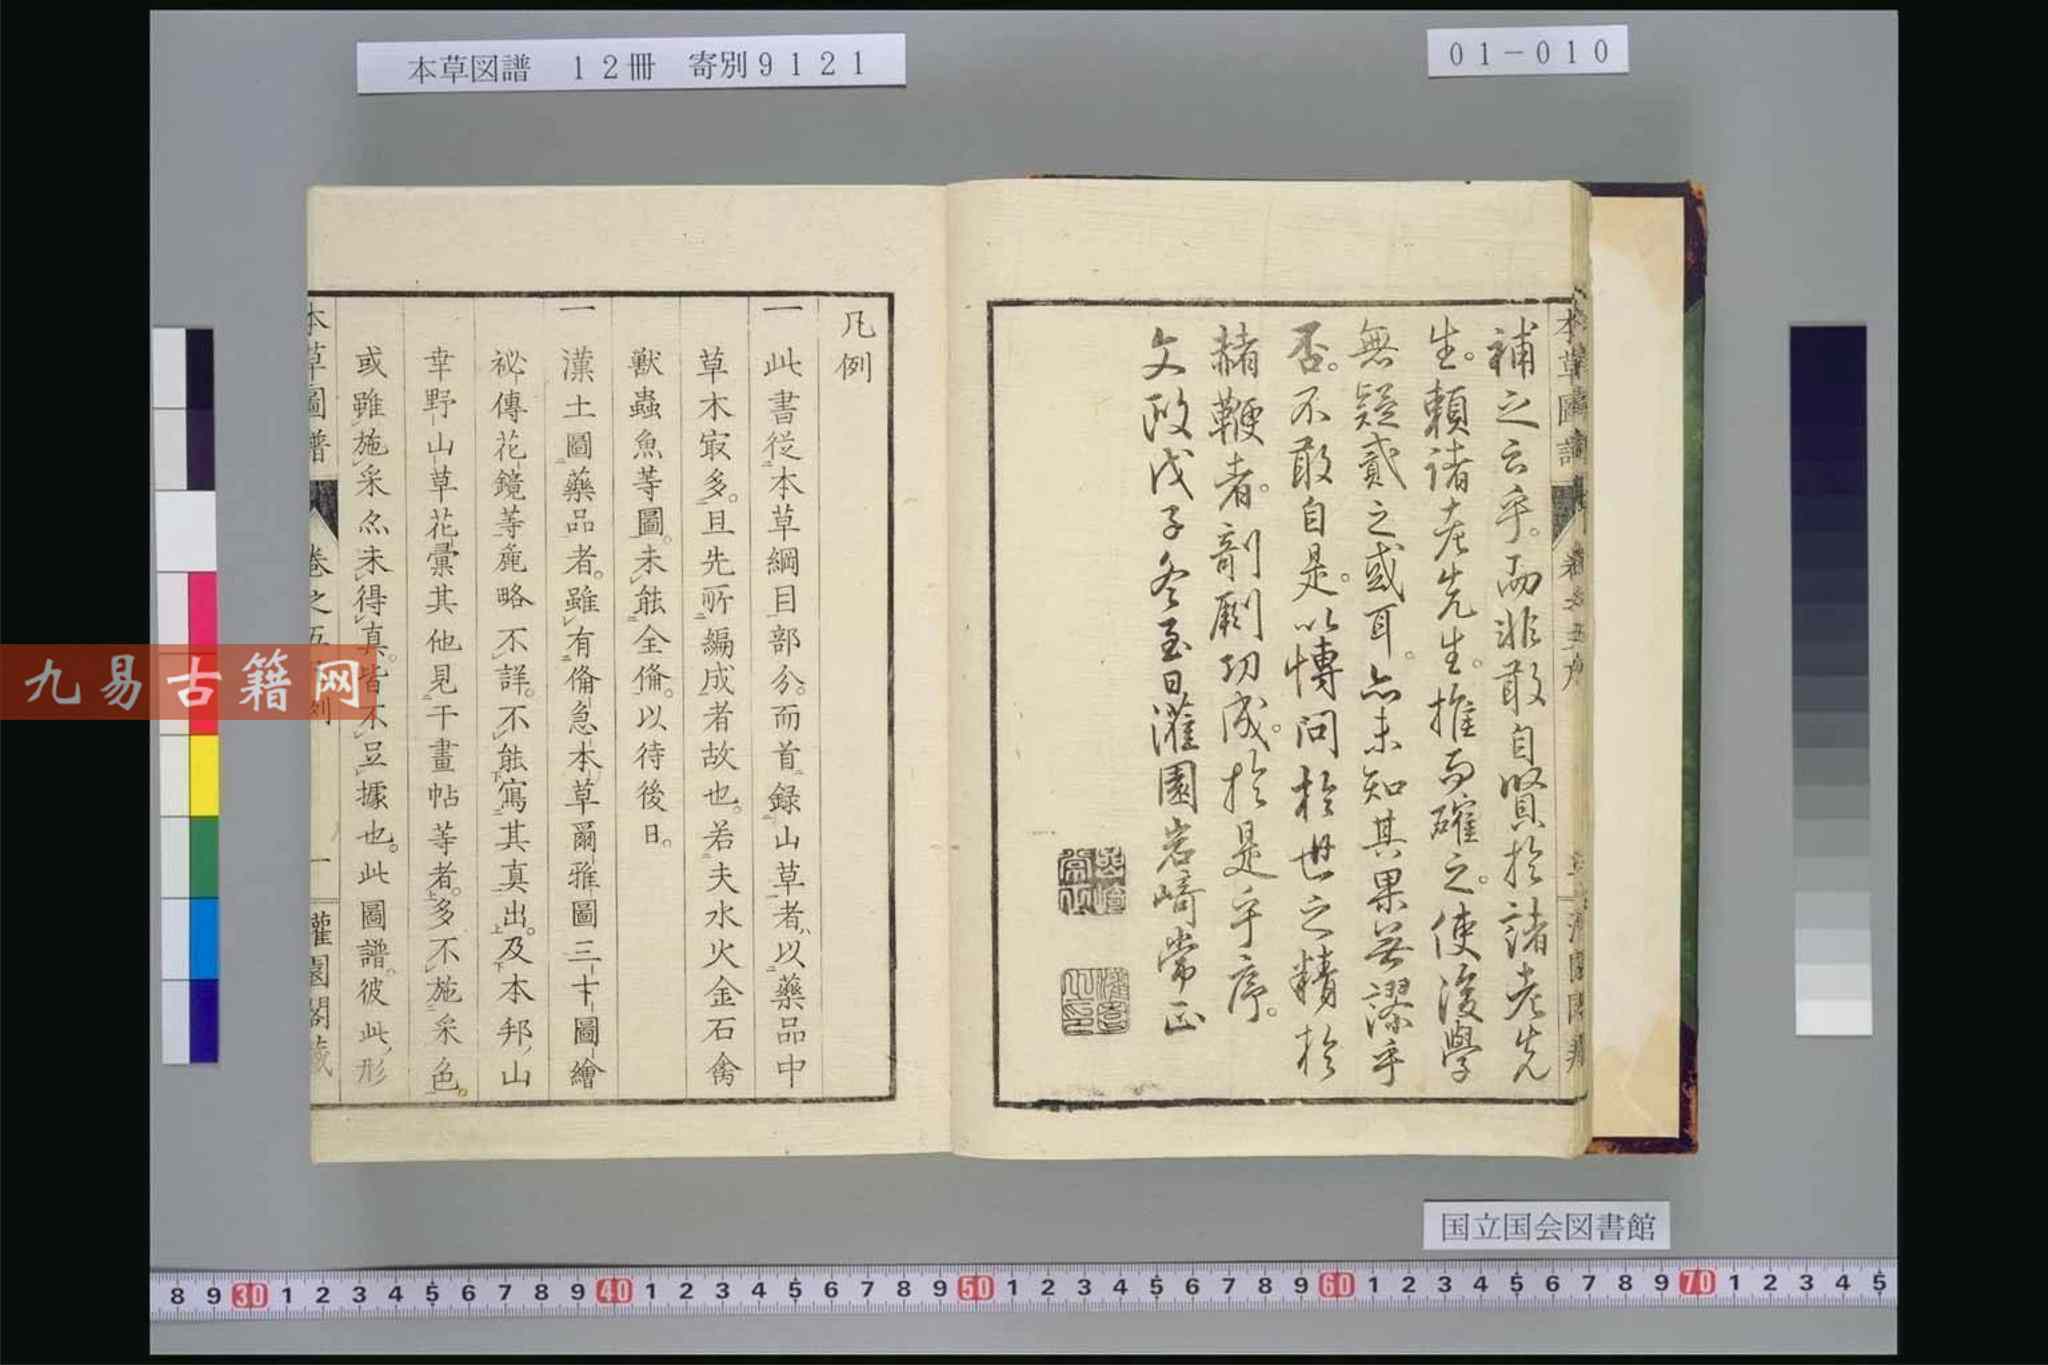 本草図譜　12冊　寄別9121
01-010
補之云乎。而非敢自賢於諸老先
生。頼諸老先生。推而確之。使後學
無疑貳之惑耳。亦未知其果無謬乎
否。不敢自是。以博問於世之精於
赭鞭者。剞劂功成。於是乎序。
文政戊子冬至日灌園岩﨑常正
凡例
一此書從本草綱目部分。而首録山草者、以藥品中
草木㝡多。且先所編成者故也。若夫水火金石禽
獸蟲魚等圖。未能全備。以待後日。
一漢土圖藥品者。雖有備急本草爾雅圖三才圖繪
祕傳花鏡等麁略不詳。不能寫其真出。及本邦山
草野山草花彙其他見于畫帖等者。多不施采色。
或雖施采亦未得真。皆不足據也。此圖譜。彼此形
本草圖譜
卷之五
一
灌園閣藏
九易古籍网
国立国会図書館
8 9 30 1 2 3 4 5 6 7 8 9 40 1 2 3 4 5 6 7 8 9 50 1 2 3 4 5 6 7 8 9 60 1 2 3 4 5 6 7 8 9 70 1 2 3 4 5